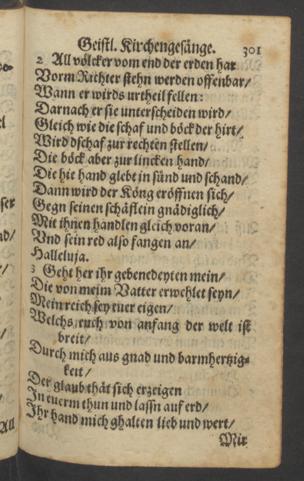 Geistl. Kirchengesänge. 301
2 All völcker vom end der erden har
Vorm Richter stehn werden offenbar/
Wann er wirds urtheil fellen:
Darnach er sie unterscheiden wird/
Gleich wie die schaf und böck der hirt/
Wird dschaf zur rechten stellen/
Die böck aber zur lincken hand/
Die hie hand glebt in sünd und schand/
Dann wird der Köng eröffnen sich/
Gegn seinen schäflein gnädiglich/
Mit ihnen handlen gleich voran/
Vnd sein red also fangen an/
Halleluja.
3 Geht her ihr gebenedeyten mein/
Die von meim Vatter erwehlet seyn/
Mein reich sey euer eigen/
Welchs euch von anfang der welt ist
breit/
Durch mich aus gnad und barmhertzig-
keit/
Der glaub thät sich erzeigen
In euerm thun und lassn auf erd/
Ihr hand mich ghalten lieb und wert/
Mir